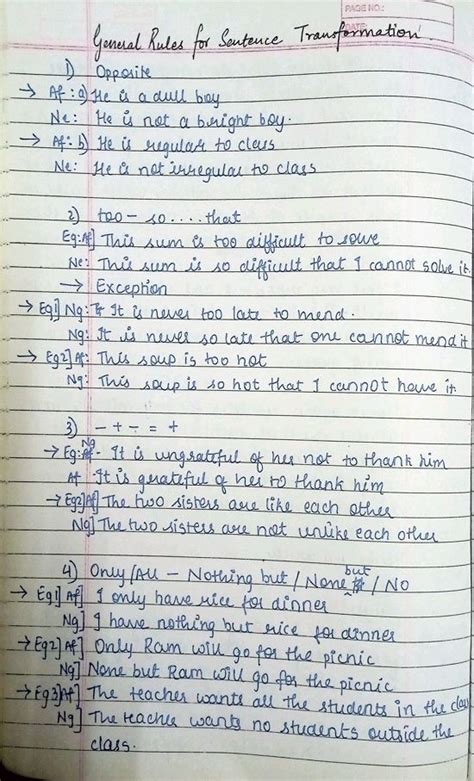 PAGE NO.:
DATE:
General Rules for Sentence Transformation.
1) Opposite
→ Af: a) He is a dull boy
Ne: He is not a bright boy.
→ Af: b) He is regular to class
Ne: He is not irregular to class
2) too - so....that
Eg: Af] This sum is too difficult to solve
Ne: This sum is so difficult that I cannot solve it.
→ Exception
→ Eg1] Ng: It is never too late to mend.
Ng: It is never so late that one cannot mend it
→ Eg2] Af: This soup is too hot
Ng: This soup is so hot that I cannot have it
3) - + - = +
→ Eg: Ng - It is ungrateful of her not to thank him
Af - It is grateful of her to thank him
→ Eg2] Af] The two sisters are like each other
Ng] The two sisters are not unlike each other
4) Only/All - Nothing but / None but / No
→ Eg1] Af] I only have rice for dinner
Ng] I have nothing but rice for dinner
→ Eg2] Af] Only Ram will go for the picnic
Ng] None but Ram will go for the picnic
→ Eg3] Af] The teacher wants all the students in the class
Ng] The teacher wants no students outside the
class.